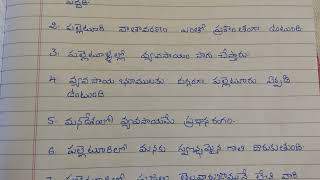 2. పల్లెటూరి వాతావరణం ఎంతో ప్రశాంతంగా ఉంటుంది.
3. పల్లెటూళ్ళల్లో వ్యవసాయం సాగు చేస్తారు.
4. వ్యవసాయ భూములకు దగ్గరగా పల్లెటూరు ఏర్పడి
ఉంటుంది
5. మనదేశంలో వ్యవసాయమే ప్రధాన రంగం.
6. పల్లెటూరిలో మనకు స్వచ్ఛమైన గాలి దొరుకుతుంది.
7. పల్లెటూరిలో ప్రజలు